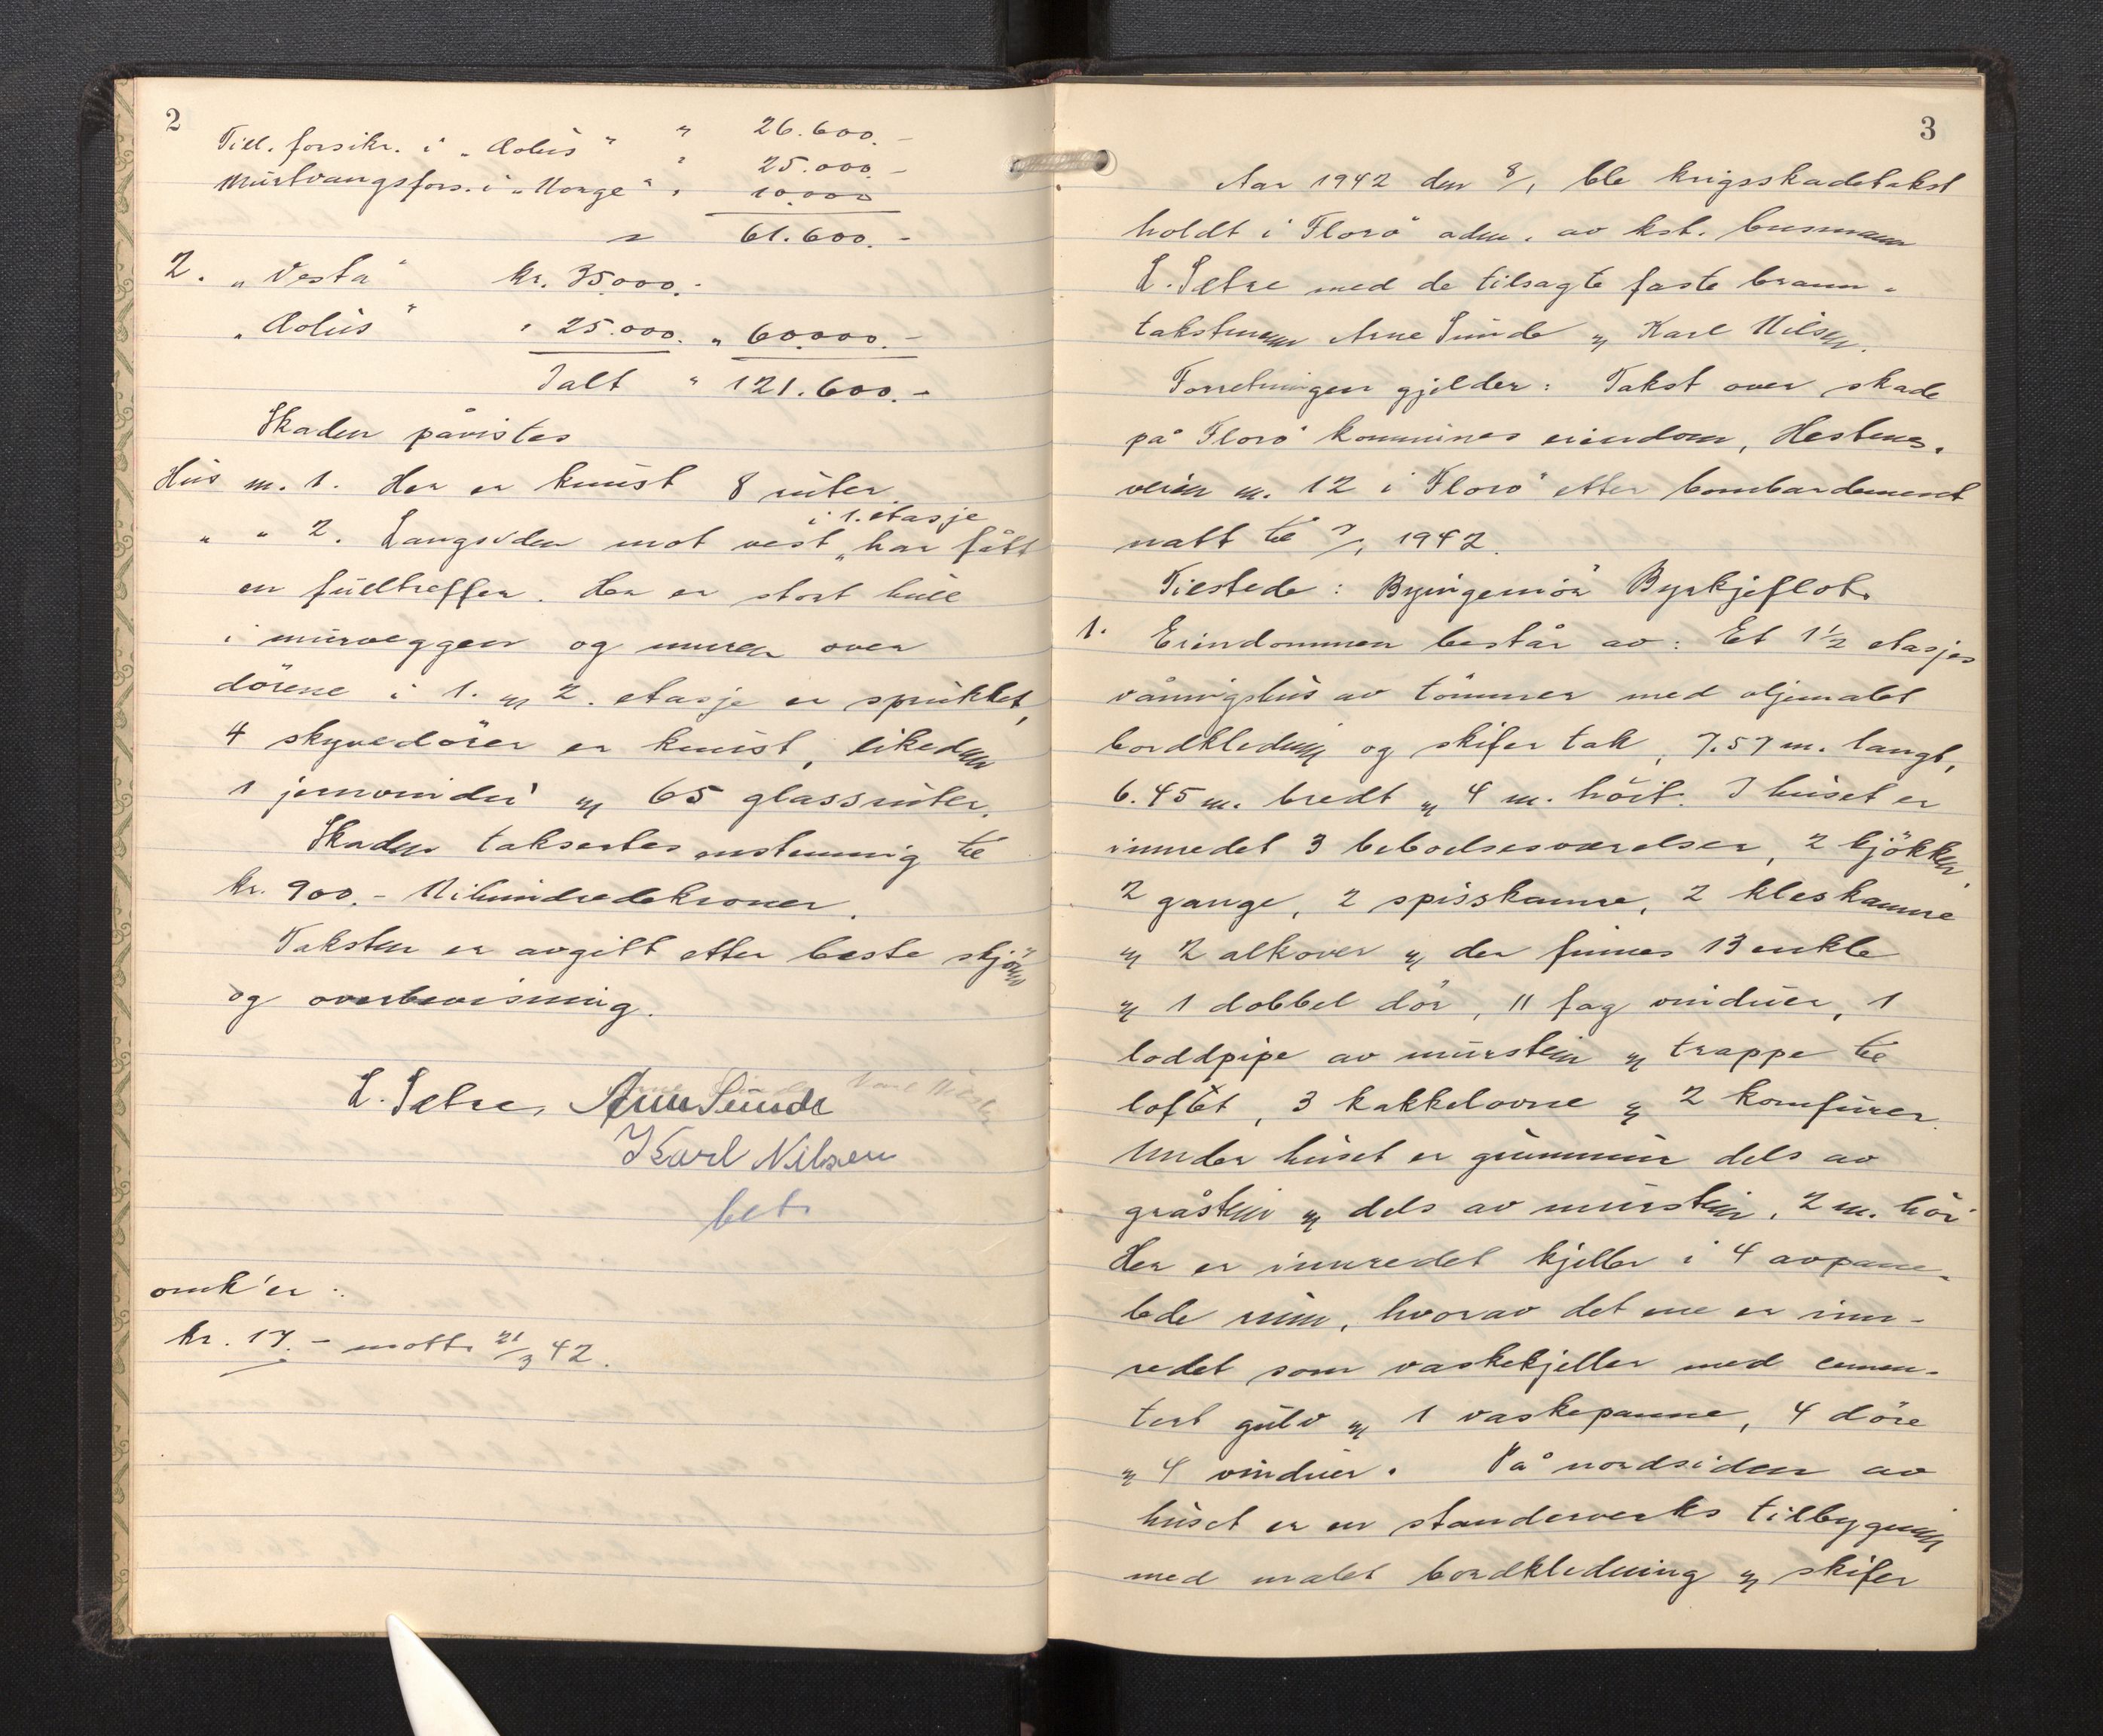 2
Till. forsikr. i „Æolus" " 26.600.-
Murtvangsfors. i „Norge" " 25.000.-
10.000
" 61.600.-
2. „Vesta" kr. 35.000.-
„Æolus" " 25.000. " 60.000.-
Ialt " 121.600.-
Skaden påvistes
Hus nr. 1. Her er knust 8 ruter.
i 1. etasje
" " 2. Langsiden mot vest " har fått
en fulltreffer. Her er stort hull
i murveggen og muren over
dörene i 1. og 2. etasje er sprukket,
4 skyvedörer er knust, likeden
1 jernvindu og 65 glassruter.
Skaden taksertes enstemmig til
kr. 900.- Nihundredekroner.
Taksten er avgitt etter beste skjönn
og overbevisning.
L. Sætre, Arne Sunde
Karl Nilsen
bet.
omk'er:
kr. 17.- mott. 21/3 42.
3
Aar 1942 den 8/1 ble krigsskadetakst
holdt i Florö adm. av kst. busmann
L. Sætre med de tilsagte faste brann-
takstmenn Arne Sunde og Karl Nilsen.
Forretningen gjelder: Takst over skade
på Florö kommunes eiendom, Hestenes-
veien nr. 12 i Florö etter bombardement
natt til 7/1 1942.
Tilstede: Byingeniör Byrkjeflot.
1. Eiendommen består av: Et 1½ etasjes
våningshus av tömmer med oljemalet
bordkledning og skifer tak, 7.57 m. langt,
6.45 m. bredt og 4 m. höit. I huset er
innredet 3 beboelsesværelser, 2 kjökken,
2 gange, 2 spisskamre, 2 kleskamre
og 2 alkover og der finnes 13 enkle
og 1 dobbel dör, 11 fag vinduer, 1
loddpipe av murstein og trappe til
loftet, 3 kakkelovne og 2 komfurer.
Under huset er grunnmur dels av
gråstein og dels av murstein, 2 m. höi
Her er innredet kjeller i 4 avpane-
lede rum, hvorav det ene er inn-
redet som vaskekjeller med cemen-
tert gulv og 1 vaskepanne, 4 döre
og 4 vinduer. På nordsiden av
huset er en standerverks tilbygning
med malet bordkledning og skifer